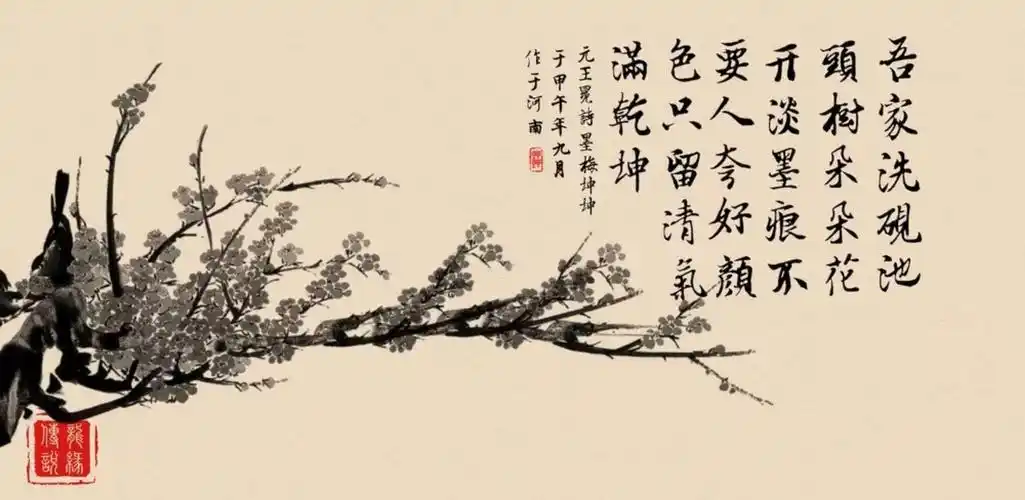 吾家洗硯池
頭樹朵朵花
开淡墨痕不
要人夸好顔
色只留清氣
滿乾坤
元王冕詩墨梅坤坤
于甲午年九月
作于河南
龍緣
傳說